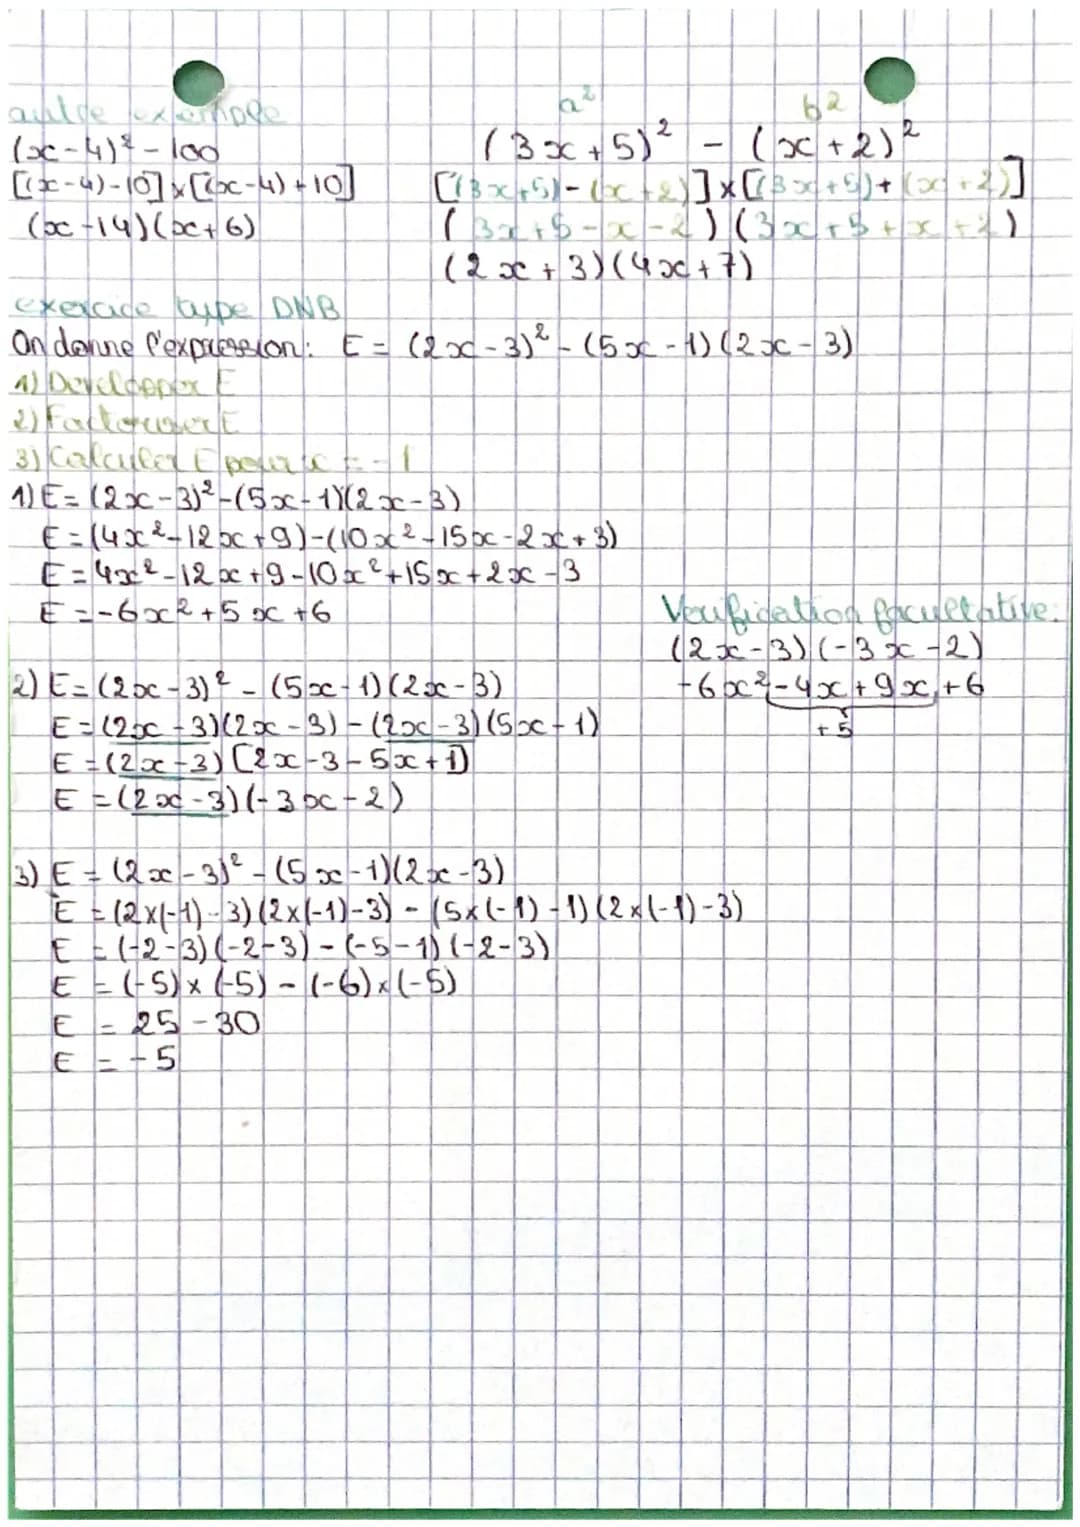 autre exemple
(x-4)² - 100
[(x-4)-10]×[(x-4)+10]
(x-14)(x+6)
a² b²
(3x+5)² - (x+2)²
[(3x+5)-(x+2)]×[(3x+5)+(x+2)]
(3x+5-x-2)(3x+5+x+2)
(2x+3)(4x+7)
exercice type DNB
On donne l'expression: E = (2x-3)² - (5x-1)(2x-3)
1) Developper E
2) Factoriser E
3) Calculer E pour x = -1
1) E = (2x-3)² - (5x-1)(2x-3)
E = (4x²-12x+9)-(10x²-15x-2x+3)
E = 4x²-12x+9-10x²+15x+2x-3
E = -6x²+5x+6
Verification facultative:
(2x-3)(-3x-2)
-6x²-4x+9x+6
+5
2) E = (2x-3)² - (5x-1)(2x-3)
E = (2x-3)(2x-3)-(2x-3)(5x-1)
E = (2x-3)[2x-3-5x+1]
E = (2x-3)(-3x-2)
3) E = (2x-3)² - (5x-1)(2x-3)
E = (2×(-1)-3)(2×(-1)-3) - (5×(-1)-1)(2×(-1)-3)
E = (-2-3)(-2-3)-(-5-1)(-2-3)
E = (-5)×(-5)-(-6)×(-5)
E = 25-30
E = -5